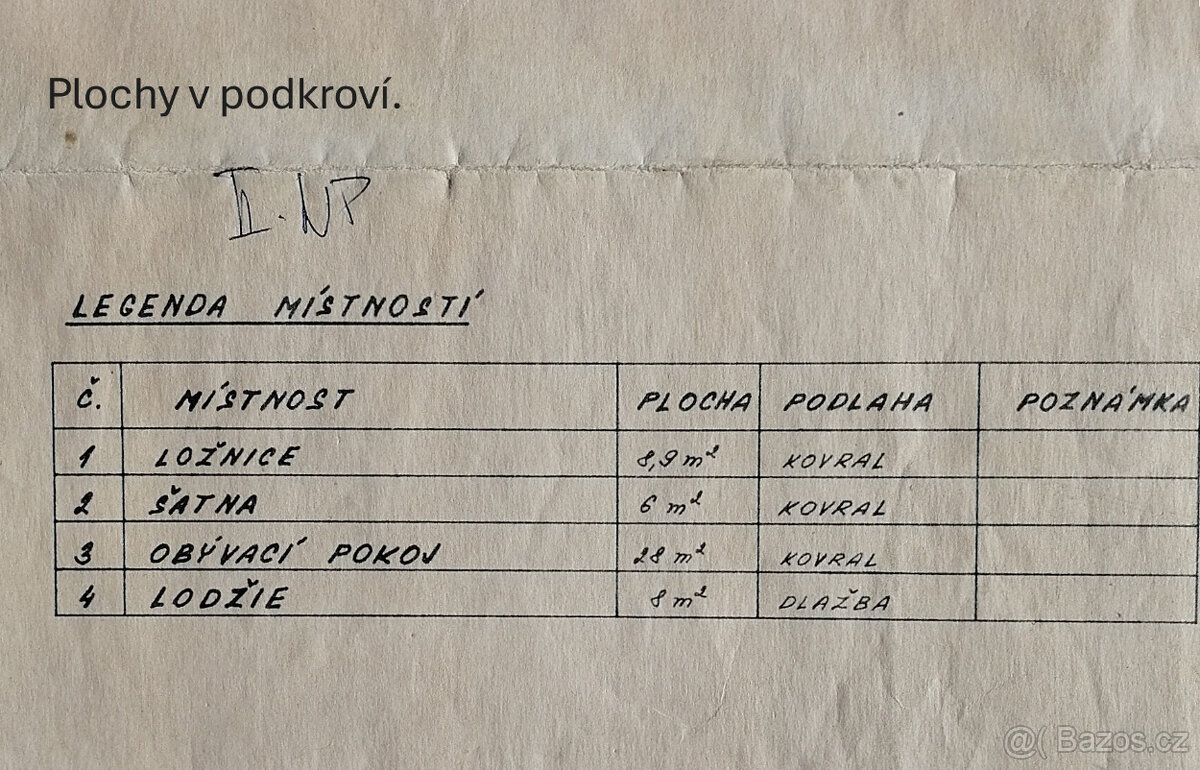 Plochy v podkroví.
II. NP
LEGENDA MÍSTNOSTÍ
Č. MÍSTNOST PLOCHA PODLAHA POZNÁMKA
1 LOŽNICE 8,9 m² KOVRAL
2 ŠATNA 6 m² KOVRAL
3 OBÝVACÍ POKOJ 28 m² KOVRAL
4 LODŽIE 8 m² DLAŽBA
@( Bazos.cz